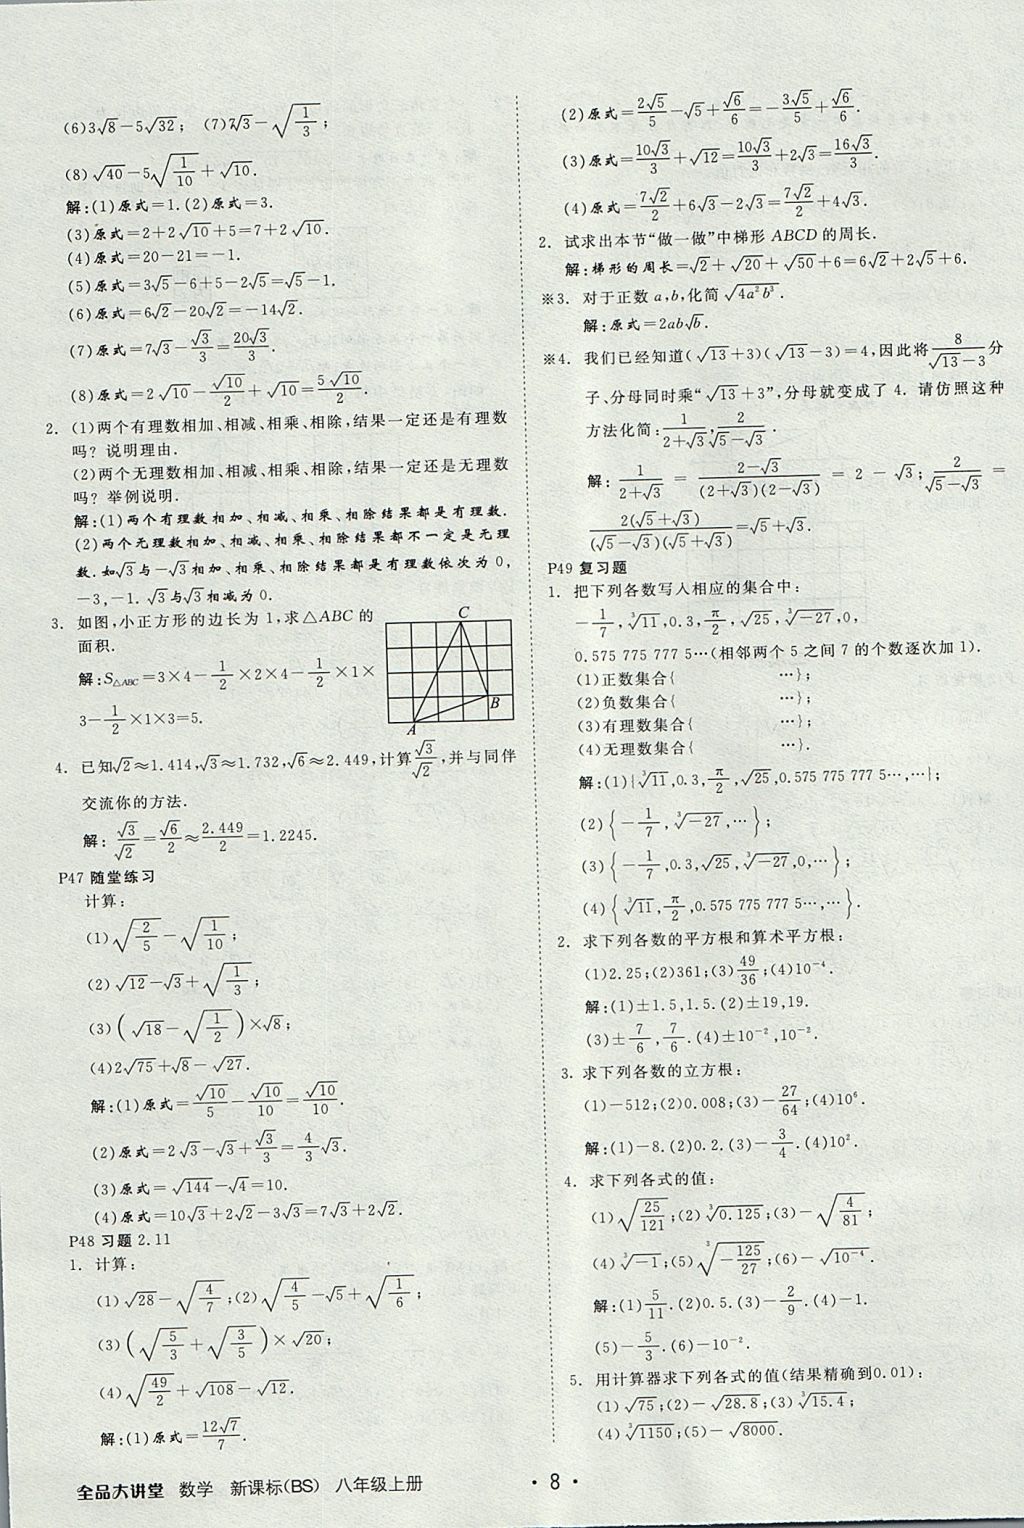 (6)3√8－5√32； (7)7√3－√(1/3)；
(8)√40－5√(1/10)＋√10.
解:(1)原式＝1.(2)原式＝3.
(3)原式＝2＋2√10＋5＝7＋2√10.
(4)原式＝20－21＝－1.
(5)原式＝3√5－6＋5－2√5＝√5－1.
(6)原式＝6√2－20√2＝－14√2.
(7)原式＝7√3－√3/3＝20√3/3.
(8)原式＝2√10－√10/2＋√10＝5√10/2.
2. (1)两个有理数相加、相减、相乘、相除,结果一定还是有理数
吗? 说明理由.
(2)两个无理数相加、相减、相乘、相除,结果一定还是无理数
吗? 举例说明.
解:(1)两个有理数相加、相减、相乘、相除结果都是有理数.
(2)两个无理数相加、相减、相乘、相除结果都不一定是无理
数.如√3与－√3相加、相乘、相除结果都是有理数依次为0,
－3,－1. √3与√3相减为0.
3. 如图,小正方形的边长为1,求△ABC的
面积.
解:S△ABC＝3×4－1/2×2×4－1/2×1×
3－1/2×1×3＝5.
C
B
A
4. 已知√2≈1.414,√3≈1.732,√6≈2.449,计算√3/√2,并与同伴
交流你的方法.
解: √3/√2＝√6/2≈2.449/2＝1.2245.
P47 随堂练习
计算:
(1)√(2/5)－√(1/10)；
(2)√12－√3＋√(1/3)；
(3)(√18－√(1/2))×√8；
(4)2√75＋√8－√27.
解:(1)原式＝√10/5－√10/10＝√10/10.
(2)原式＝2√3－√3＋√3/3＝4/3√3.
(3)原式＝√144－√4＝10.
(4)原式＝10√3＋2√2－3√3＝7√3＋2√2.
P48 习题2.11
1. 计算:
(1)√28－√(4/7)；(2)√(4/5)－√5＋√(1/6)；
(3)(√(5/3)＋√(3/5))×√20；
(4)√(49/2)＋√108－√12.
解:(1)原式＝12√7/7.
(2)原式＝2√5/5－√5＋√6/6＝－3√5/5＋√6/6.
(3)原式＝10√3/3＋√12＝10√3/3＋2√3＝16√3/3.
(4)原式＝7√2/2＋6√3－2√3＝7√2/2＋4√3.
2. 试求出本节“做一做”中梯形ABCD的周长.
解:梯形的周长＝√2＋√20＋√50＋6＝6√2＋2√5＋6.
※3. 对于正数a,b,化简√(4a²b³).
解:原式＝2ab√b.
※4. 我们已经知道(√13＋3)(√13－3)＝4,因此将8/(√13－3)分
子、分母同时乘“√13＋3”,分母就变成了4. 请仿照这种
方法化简:1/(2＋√3),2/(√5－√3).
解: 1/(2＋√3)＝(2－√3)/((2＋√3)(2－√3))＝2－√3；2/(√5－√3)＝
2(√5＋√3)/((√5－√3)(√5＋√3))＝√5＋√3.
P49 复习题
1. 把下列各数写入相应的集合中:
－1/7,∛11,0.3,π/2,√25,∛－27,0,
0.575 775 777 5…(相邻两个5之间7的个数逐次加1).
(1)正数集合{ …}；
(2)负数集合{ …}；
(3)有理数集合{ …}；
(4)无理数集合{ …}.
解:(1){∛11,0.3,π/2,√25,0.575 775 777 5…,…}；
(2){－1/7,∛－27,…}；
(3){－1/7,0.3,√25,∛－27,0,…}；
(4){∛11,π/2,0.575 775 777 5…,…}.
2. 求下列各数的平方根和算术平方根:
(1)2.25；(2)361；(3)49/36；(4)10⁻⁴.
解:(1)±1.5,1.5.(2)±19,19.
(3)±7/6,7/6.(4)±10⁻²,10⁻².
3. 求下列各数的立方根:
(1)－512；(2)0.008；(3)－27/64；(4)10⁶.
解:(1)－8.(2)0.2.(3)－3/4.(4)10².
4. 求下列各式的值:
(1)√(25/121)；(2)∛0.125；(3)－√(4/81)；
(4)∛－1；(5)∛(－125/27)；(6)－√10⁻⁴.
解:(1)5/11.(2)0.5.(3)－2/9.(4)－1.
(5)－5/3.(6)－10⁻².
5. 用计算器求下列各式的值(结果精确到0.01):
(1)√75；(2)－√28.8；(3)∛15.4；
(4)∛1150；(5)－√8000.
全品大讲堂 数学 新课标(BS) 八年级上册
·8·